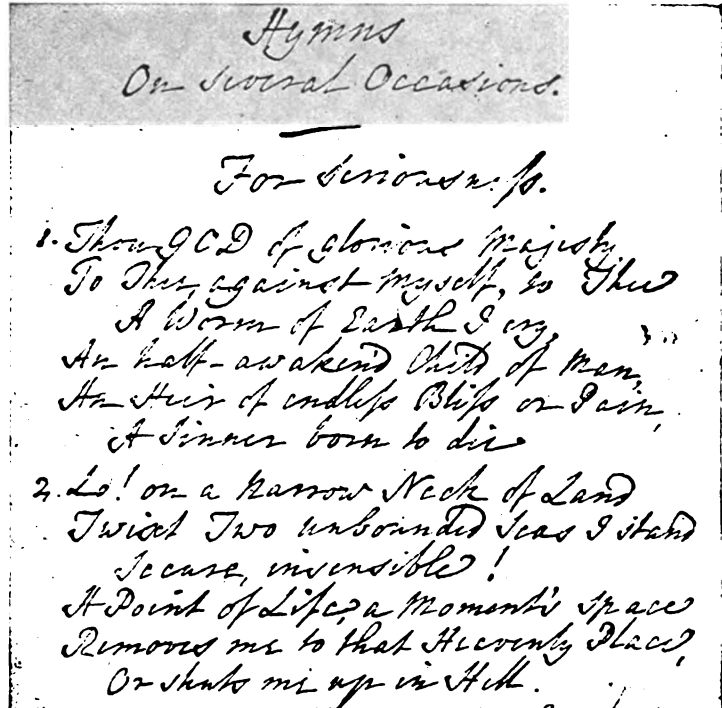 Hymns
On several Occasions.
For seriousness.
1. Thou GOD of glorious Majesty,
To Thee, against Myself, to Thee
A Worm of Earth I cry,
An half-awaken'd Child of Man,
An Heir of endless Bliss or Pain,
A Sinner born to die
2. Lo! on a Narrow Neck of Land
Twixt Two unbounded seas I stand
Secure, insensible!
A Point of Life, a Moment's space
Removes me to that Heavenly Place,
Or shuts me up in Hell.